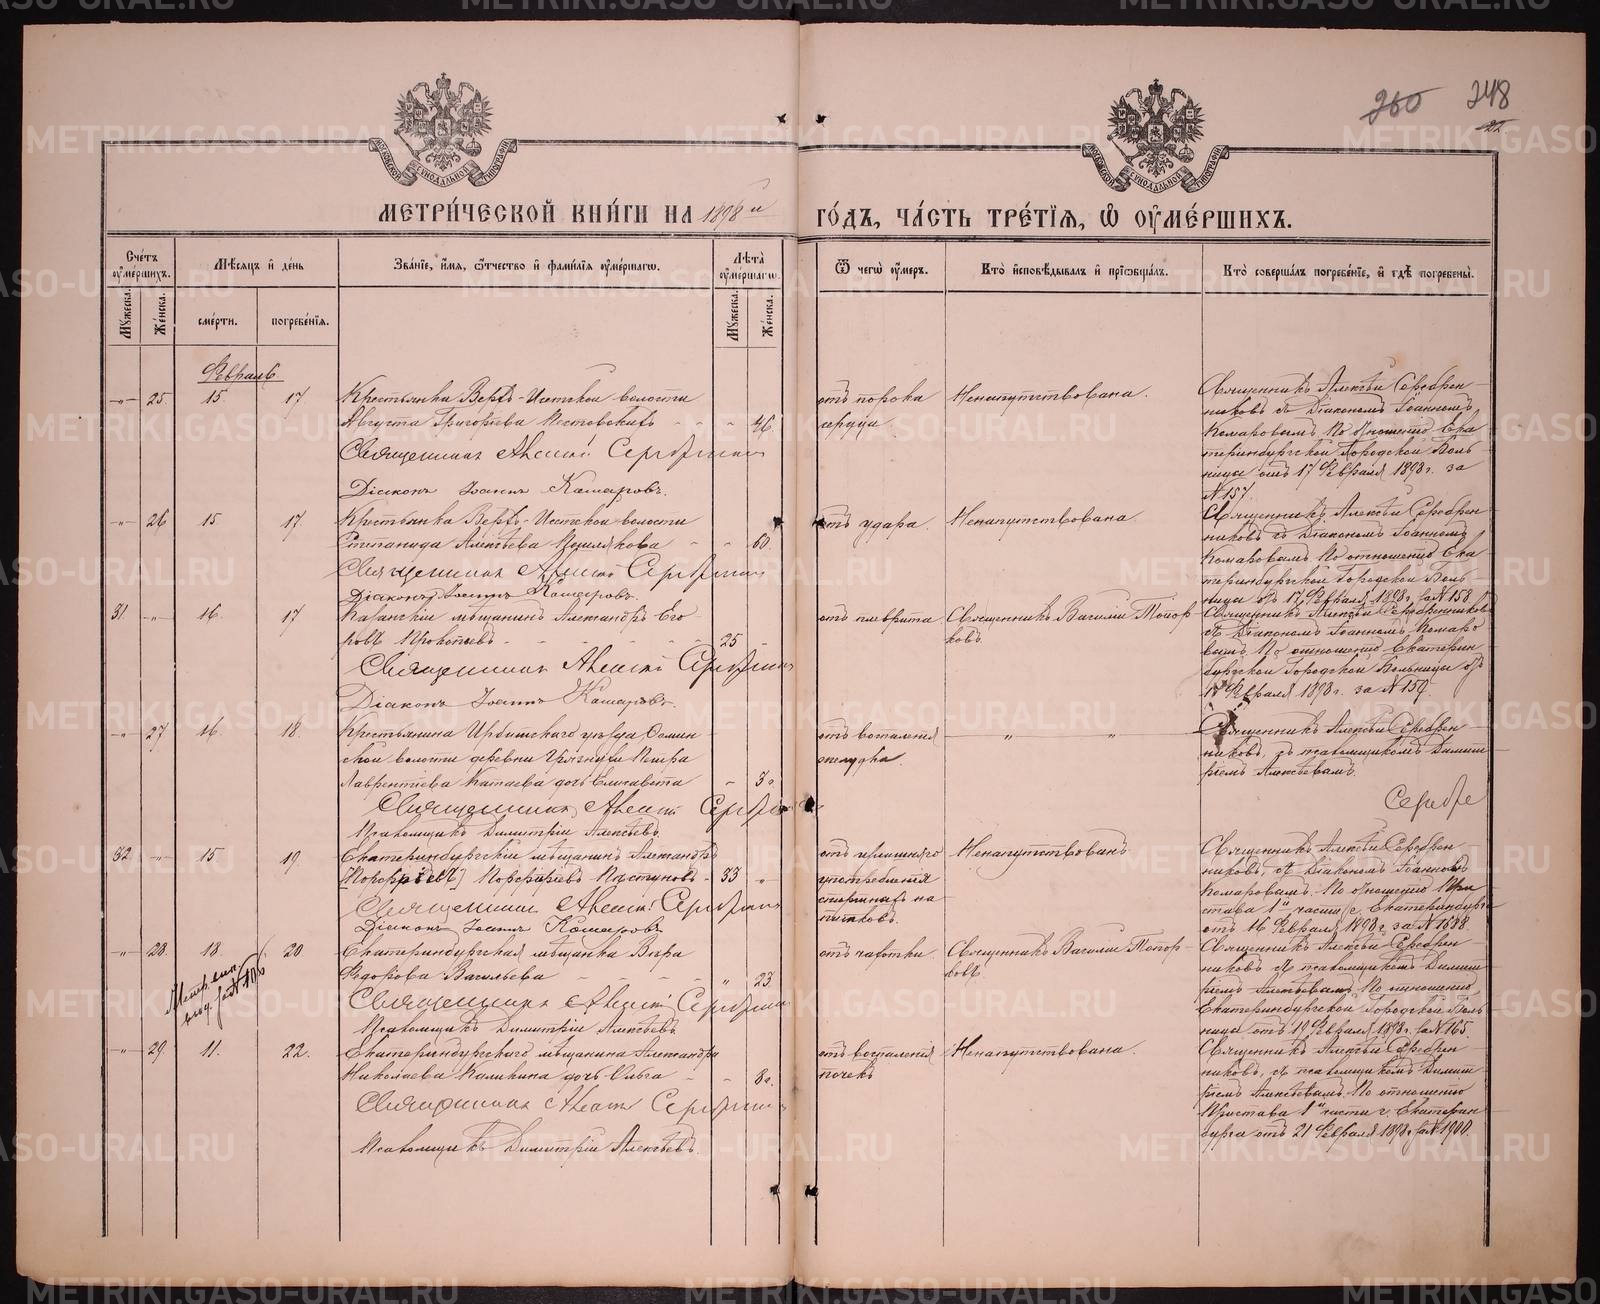 260 248
22
МОСКОВСКОЙ СѴНОДАЛЬНОЙ ТИПОГРАФІИ
МОСКОВСКОЙ СѴНОДАЛЬНОЙ ТИПОГРАФІИ
МЕТРИ́ЧЕСКОЙ КНИ́ГИ НА 1898 й
ГО́ДЪ, ЧА́СТЬ ТРЕ́ТІЯ, Ѡ ОУМЕ́РШИХЪ.
Сче́тъ оуме́ршихъ.
Мѣ́сяцъ и де́нь
Зва́ніе, и́мя, ѻ́тчество и фами́лія оуме́ршагѡ.
Лѣ́та оуме́ршагѡ.
Ѿ чегѡ̀ оу́меръ.
Кто̀ исповѣ́дывалъ и пріѡбща́лъ.
Кто̀ соверша́лъ погребе́ніе, и гдѣ̀ погребены̀.
Му́жеска. Же́нска. сме́рти. погребе́нія. Му́жеска. Же́нска.
Февраль
-"- 25. 15. 17 Крестьянка Верхъ-Исетской волости
Августа Григорьева - - - 46.
Священникъ Алексій Серебренниковъ
Діаконъ Іоаннъ Комаровъ.
отъ порока
сердца
Ненапутствована.
Священникъ Алексѣй Серебрен
никовъ съ Діакономъ Іоанномъ
Комаровымъ. По отношенію Ека
теринбургской Городской Боль
ницы отъ 17 Февраля 1898 г. за
№ 157.
-"- 26 15 17. Крестьянка Верхъ-Исетской волости
Степанида Алексѣева - - 60.
Священникъ Алексій Серебренниковъ
Діаконъ Іоаннъ Комаровъ.
отъ удара.
Ненапутствована
Священникъ Алексѣй Серебрен
никовъ съ Діакономъ Іоанномъ
Комаровымъ По отношенію Ека
теринбургской Городской Боль
ницы отъ 17 Февраля 1898 г. за № 158.
31 -"- 16. 17 Казанскій мѣщанинъ Александръ Его
ровъ Прокопьевъ - - - 25 -
Священникъ Алексій Серебренниковъ
Діаконъ Іоаннъ Комаровъ.
отъ плеврита
Священникъ Василій Топор
ковъ.
Священникъ Алексѣй Серебренниковъ
съ Діакономъ Іоанномъ Комаро
вымъ. По отношенію Екатерин
бургской Городской Больницы отъ
17 Февраля 1898 г. за № 159.
-"- 27 16. 18. Крестьянина Ирбитскаго уѣзда
волости деревни Петра
Лаврентіева Катаева дочь Елизавета - 3 г.
Священникъ Алексій Серебре
Псаломщикъ Димитрій Алексѣевъ.
отъ воспаленія
желудка.
" "
Священникъ Алексѣй Серебрен
никовъ, съ псаломщикомъ Димит
ріемъ Алексѣевымъ.
Серебре
32 -"- 15 19. Екатеринбургскій мѣщанинъ Александръ
[Порфирьевъ] Порфирьевъ Пастуховъ - 33 "
Священникъ Алексій Серебренниковъ
Діаконъ Іоаннъ Комаровъ
отъ излишняго
употребленія
спиртныхъ на
питковъ.
Ненапутствованъ
Священникъ Алексѣй Серебрен
никовъ, съ Діакономъ Іоанномъ
Комаровымъ. По отношенію При
става 1й части г. Екатеринбурга
отъ 16 Февраля 1898 г. за № 1688.
-"- 28. 18. 20 Екатеринбургская мѣщанка Вѣра
Ѳедорова Васильева - - - " 23
Священникъ Алексій Серебренниковъ
Псаломщикъ Димитрій Алексѣевъ
отъ чахотки.
Священникъ Василій Топор
ковъ
Священникъ Алексѣй Серебрен
никовъ съ псаломщикомъ Димит
ріемъ Алексѣевымъ По отношенію
Екатеринбургской Городской Боль
ницы отъ 19 Февраля 1898 г. за № 165.
-"- 29. 11. 22. Екатеринбургскаго мѣщанина Александра
Николаева Калинина дочь Ольга - - 8 г.
Священникъ Алексій Серебренниковъ
Псаломщикъ Димитрій Алексѣевъ.
отъ воспаленія
почекъ
Ненапутствована.
Священникъ Алексѣй Серебрен
никовъ, съ псаломщикомъ Димит
ріемъ Алексѣевымъ. По отношенію
Пристава 1й части г. Екатерин
бурга отъ 21 Февраля 1898 г. за № 1900.
METRIKI.GASO-URAL.RU